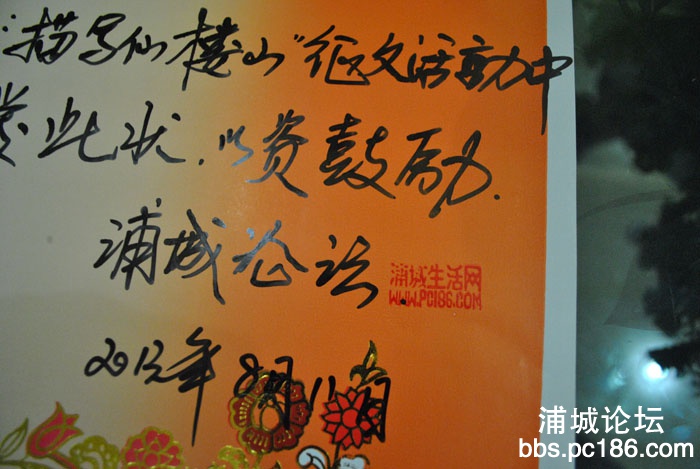 "描写仙楼山"征文活动中
此状，以资鼓励.
浦城论坛
浦城生活网
WWW.PC186.COM
2012年8月11日
浦城论坛
bbs.pc186.com